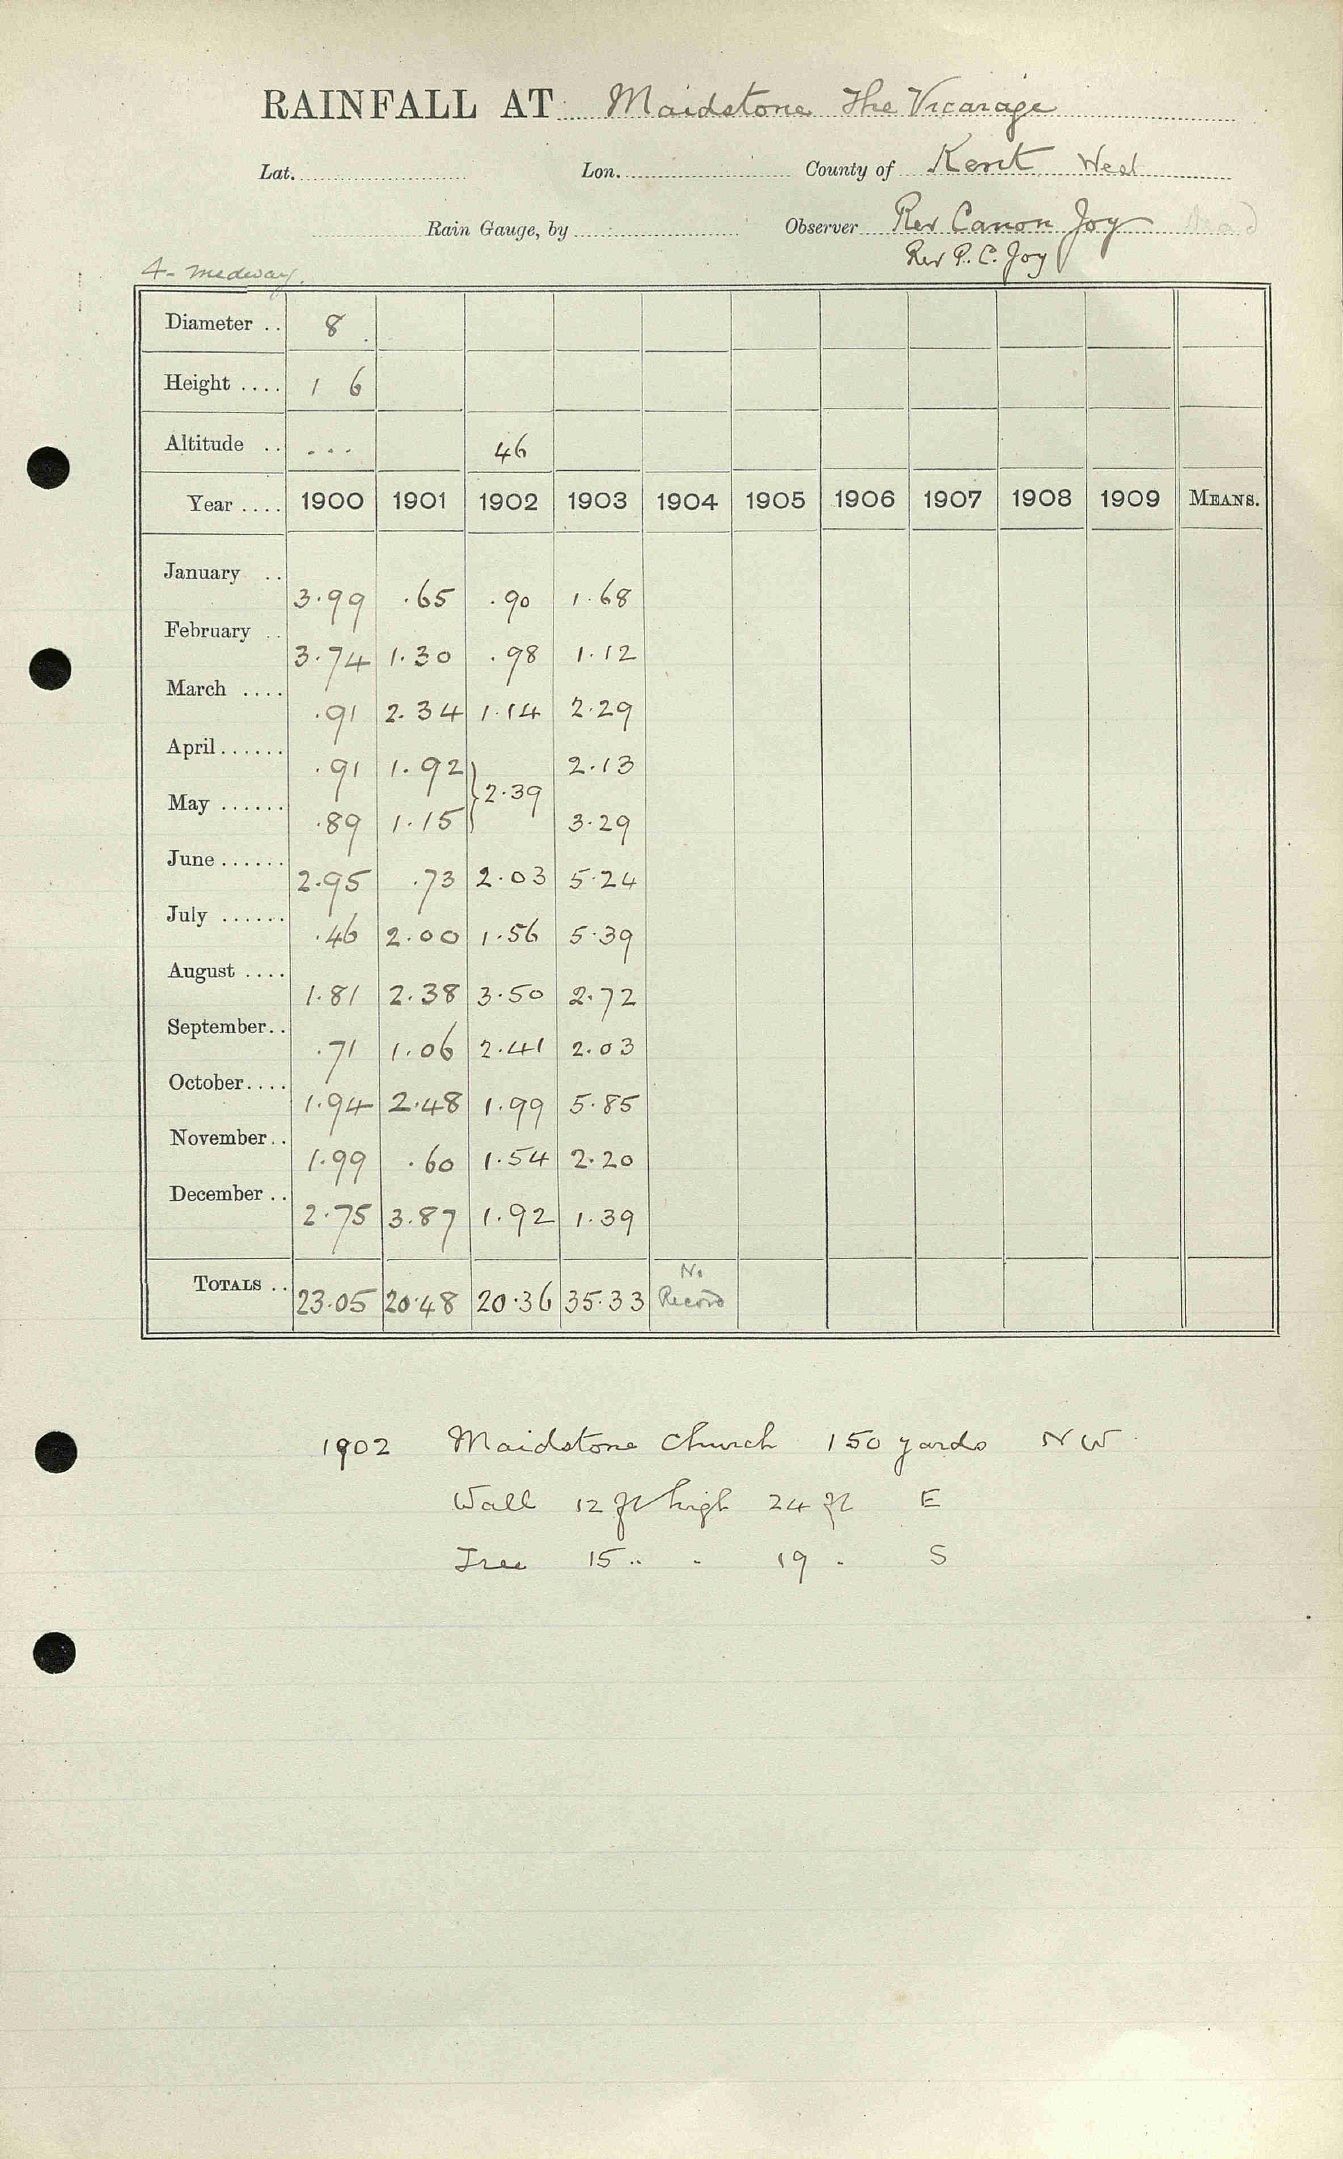 RAINFALL AT Maidstone The Vicarage
Lat. Lon. County of Kent West
Rain Gauge, by Observer Rev Canon Joy dead
Rev P. C. Joy
4- Medway.
Diameter .. 8
Height .... 1 6
Altitude .. ... 46
Year .... 1900 1901 1902 1903 1904 1905 1906 1907 1908 1909 MEANS.
January .. 3.99 .65 .90 1.68
February .. 3.74 1.30 .98 1.12
March .... .91 2.34 1.14 2.29
April ...... .91 1.92 2.13
} 2.39
May ...... .89 1.15 3.29
June ...... 2.95 .73 2.03 5.24
July ...... .46 2.00 1.56 5.39
August .... 1.81 2.38 3.50 2.72
September .. .71 1.06 2.41 2.03
October .... 1.94 2.48 1.99 5.85
November .. 1.99 .60 1.54 2.20
December .. 2.75 3.87 1.92 1.39
TOTALS .. 23.05 20.48 20.36 35.33 No Record
1902 Maidstone Church 150 yards NW.
Wall 12 ft high 24 ft E
Tree 15 .. - 19 - S